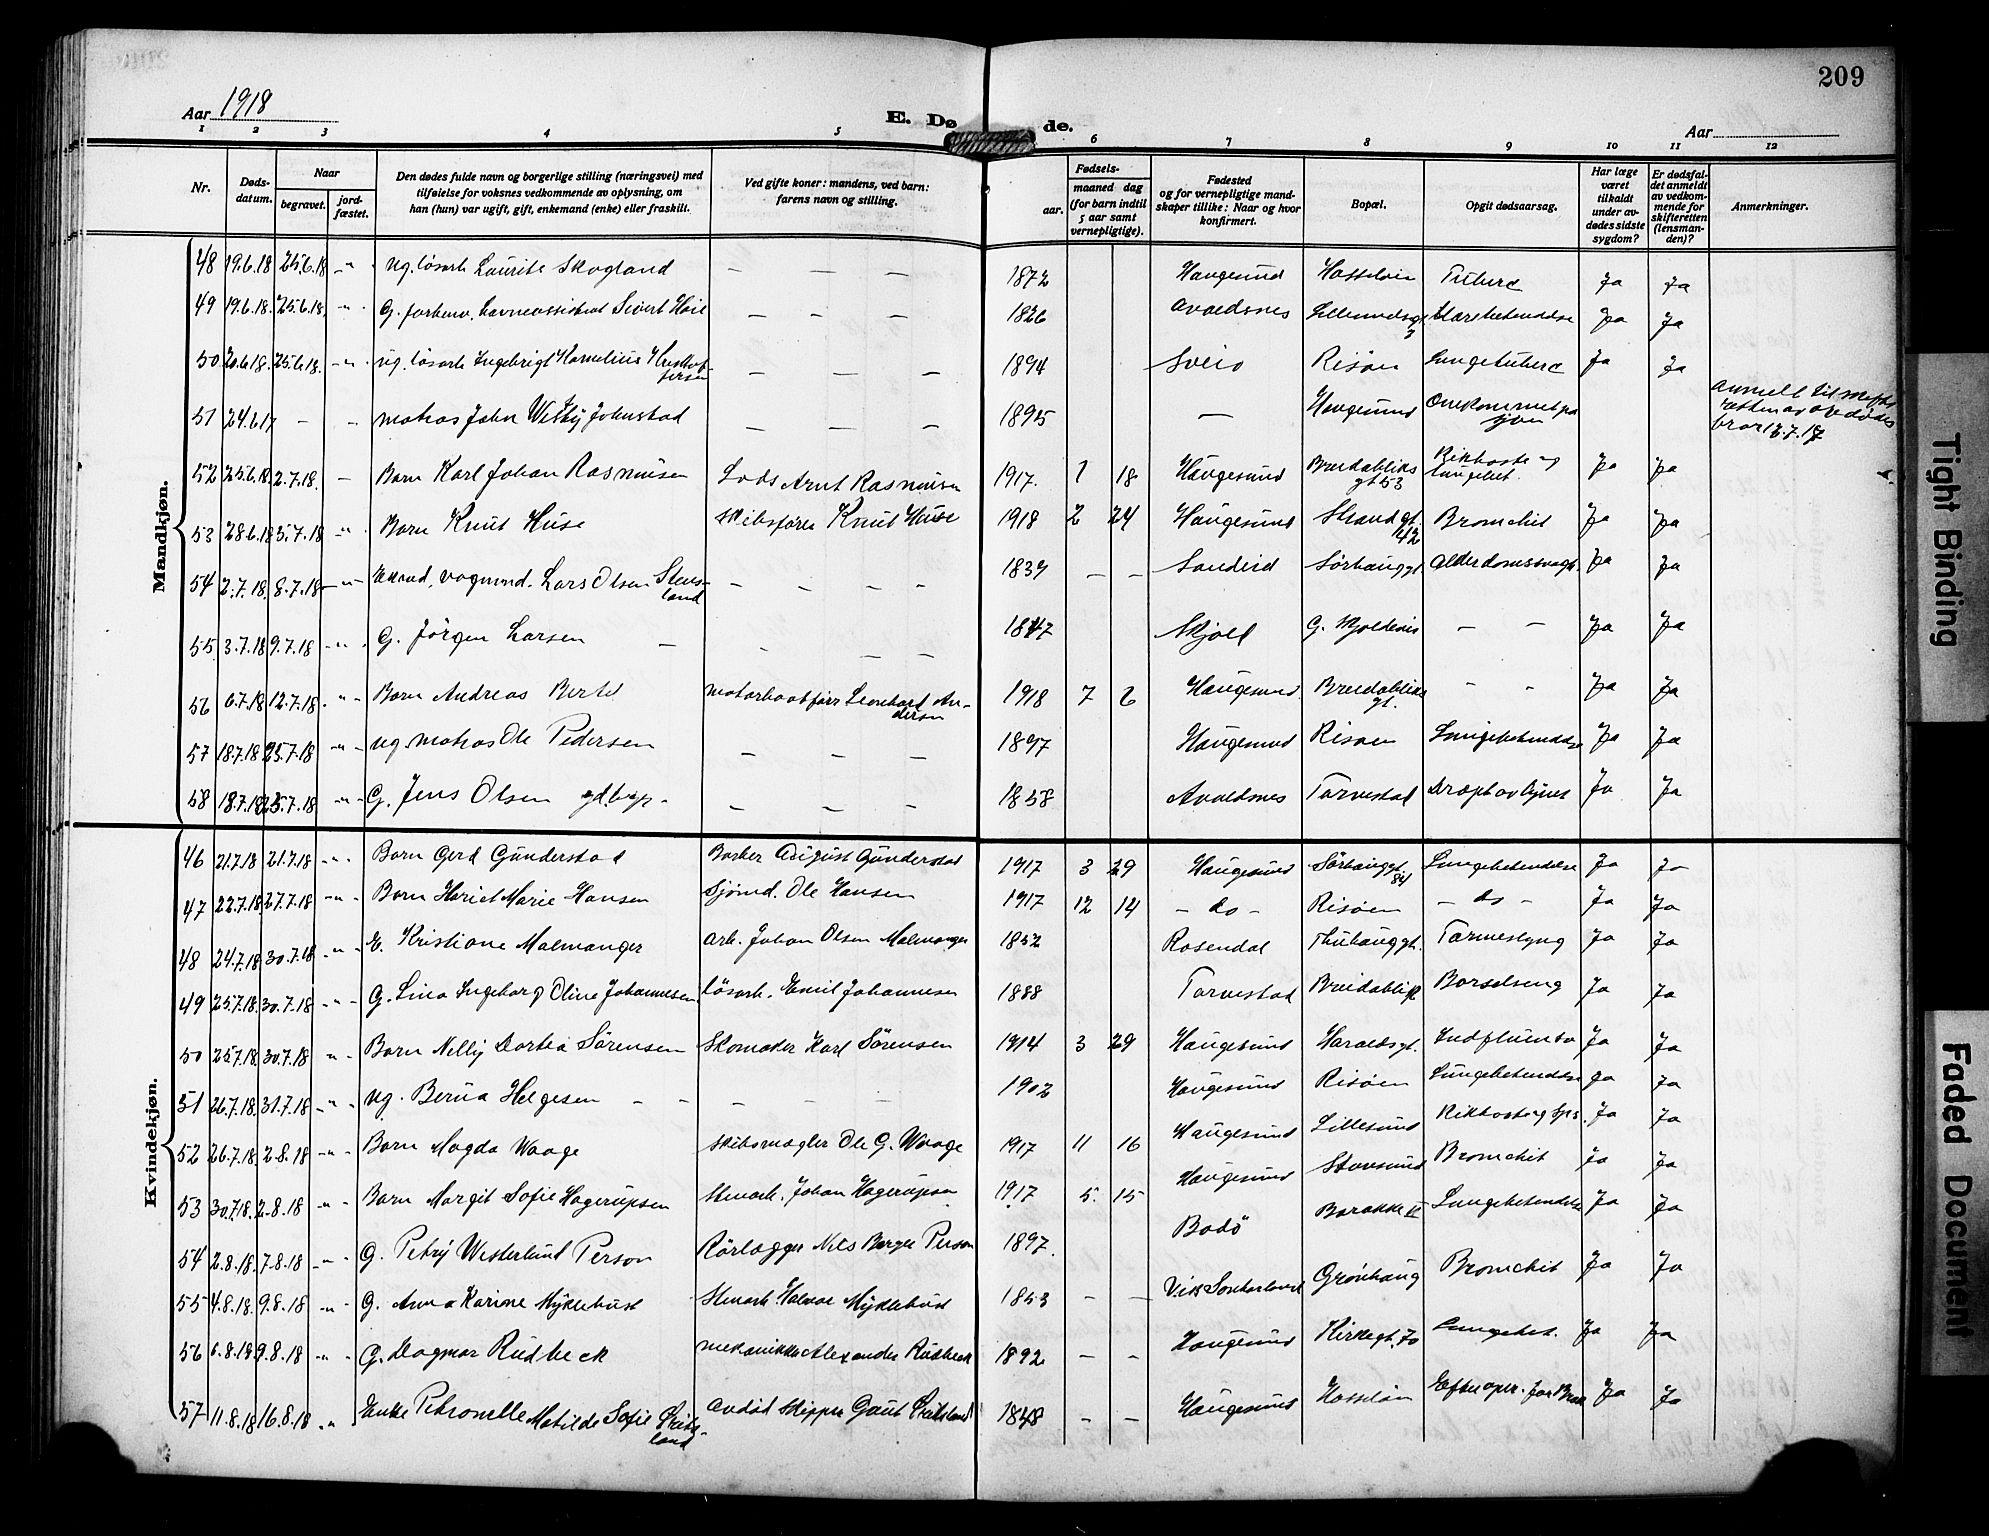 209
Aar 1918
E. Dø de.
Aar
1 2 3 4 5 6 7 8 9 10 11 12
Nr.
Døds-
datum.
Naar
begravet.
jord-
fæstet.
Den dødes fulde navn og borgerlige stilling (næringsvei) med
tilføielse for voksnes vedkommende av oplysning, om
han (hun) var ugift, gift, enkemand (enke) eller fraskilt.
Ved gifte koner: mandens, ved barn:
farens navn og stilling.
Fødsels-
aar.
maaned dag
(for barn indtil
5 aar samt
vernepligtige).
Fødested
og for vernepligtige mand-
skaper tillike: Naar og hvor
konfirmert.
Bopæl.
Opgit dødsaarsag.
Har læge
været
tilkaldt
under av-
dødes sidste
sygdom?
Er dødsfal-
det anmeldt
av vedkom-
mende for
skifteretten
(lensman-
den)?
Anmerkninger.
Mandkjøn.
48 19.6.18 25.6.18 -"- ug. løsarb Laurits Skogland — — — 1872 Haugesund Hasseløen Tuberc Ja Ja
49 19.6.18. 25.6.18. -"- G. forhenv. havneassistent Sivert — — — 1826 Avaldsnes 3 Ja Ja
50 20.6.18. 25.6.18. -"- ug. løsarb Ingebrigt Kornelius Kristof-
fersen — — — 1894 Sveio Risøen Lungetuberc Ja Ja
51 24.6.17 - - matros John Johnstad — — — 1895 — Haugesund Omkommet paa
sjøen
anmelt til skifte
retten av avdødes
bror 13.7.17
52 25.6.18. 2.7.18. - Barn Karl Johan Rasmussen Lods Arnt Rasmussen 1917. 1 18 Haugesund Breidabliks
gt 53 Kikhoste og
lungebet. Ja Ja
53 28.6.18 5.7.18 -"- Barn Knut Huse Skibsfører Knut Huse 1918 2 24 Haugesund Strandgt.
142 Bronchit Ja Ja
54 2.7.18. 8.7.18 -"- Lars Olsen Stens-
land - - - - 1839 - - Sandeid Sørhauggt. Alderdomssvagh. Ja Ja
55 3.7.18 9.7.18 -"- G. Jörgen Larsen - - - - 1847 Skjold G. Skjoldevis - - Ja Ja
56 6.7.18 12.7.18. -"- Barn Andreas Bertel motorbaatfører Leonhard An-
dersen 1918 7 6 Haugesund Breidabliks
gt. - - Ja Ja
57 18.7.18 25.7.18 -"- ug. matros Ole Pedersen — — — 1897 Haugesund Risøen Lungebetændelse Ja Ja
58 18.7.18 25.7.18 -"- G. Jens Olsen — — — 1858 Avaldsnes Torvestad Dræpt av lynet Ja Ja
Kvindekjøn.
46 21.7.18 21.7.18 -"- Barn Gerd Gunderstad Barber August Gunderstad 1917 3 29 Haugesund Sørhauggt.
84 Lungebetændelse Ja Ja
47 22.7.18 27.7.18 -"- Barn Hariet Marie Hansen Sjømd. Ole Hansen 1917 12 14 - do - Risøen - do - Ja Ja
48 24.7.18 30.7.18 -"- E. Kristiane Malmanger arb. Johan Olsen Malmanger 1852 Rosendal Thuhauggt. Tarmeslyng Ja Ja
49 25.7.18. 30.7.18 -"- G. Lina Ingeborg Oline Johannesen løsarb. Emil Johannesen 1888 Torvestad Breidablik Barselseng Ja Ja
50 25.7.18. 30.7.18 " Barn Nelly Dortea Sørensen Skomaker Karl Sørensen 1914 3 29 Haugesund Haraldsgt. Indfluensa Ja Ja
51 26.7.18. 31.7.18 -"- ug. Berna Helgesen - - - - - 1902 Haugesund Risøen Lungebetændelse Ja Ja
52 26.7.18. 2.8.18 -"- Barn Magda Waage Skibsmægler Ole G. Waage 1917 11 16 Haugesund Lillesund Kikhoste og Ja Ja
53 30.7.18. 2.8.18 -"- Barn Margit Sofie Hagerupsen Stenarb. Johan Hagerupsen 1917 5. 15 Haugesund Storsund Bronchit Ja Ja
54 2.8.18. 7.8.18 -"- G. Petry Westerlund Person Rörlægger Nils Berger Person 1897. Bodö Barakke II Lungebetændelse Ja Ja
55 4.8.18. 9.8.18 -"- G. Anna Karine Myklebust Stenarb. Halvor Myklebust 1853 - - Vik Grønhaug Bronchit Ja Ja
56 6.8.18 9.8.18 -"- G. Dagmar Rudbeck mekaniker Alexander Rudbeck 1892 - - Haugesund Kirkegt. 70 Lungebet. Ja Ja
57 11.8.18 16.8.18 -"- Enke Petronelle Matilde Sofie Skibs-
land avdød skipper Gaut Skibsland 1848 - - Haugesund Hasseløen Efter oper. for Brok Ja Ja
Tight Binding
Faded Document